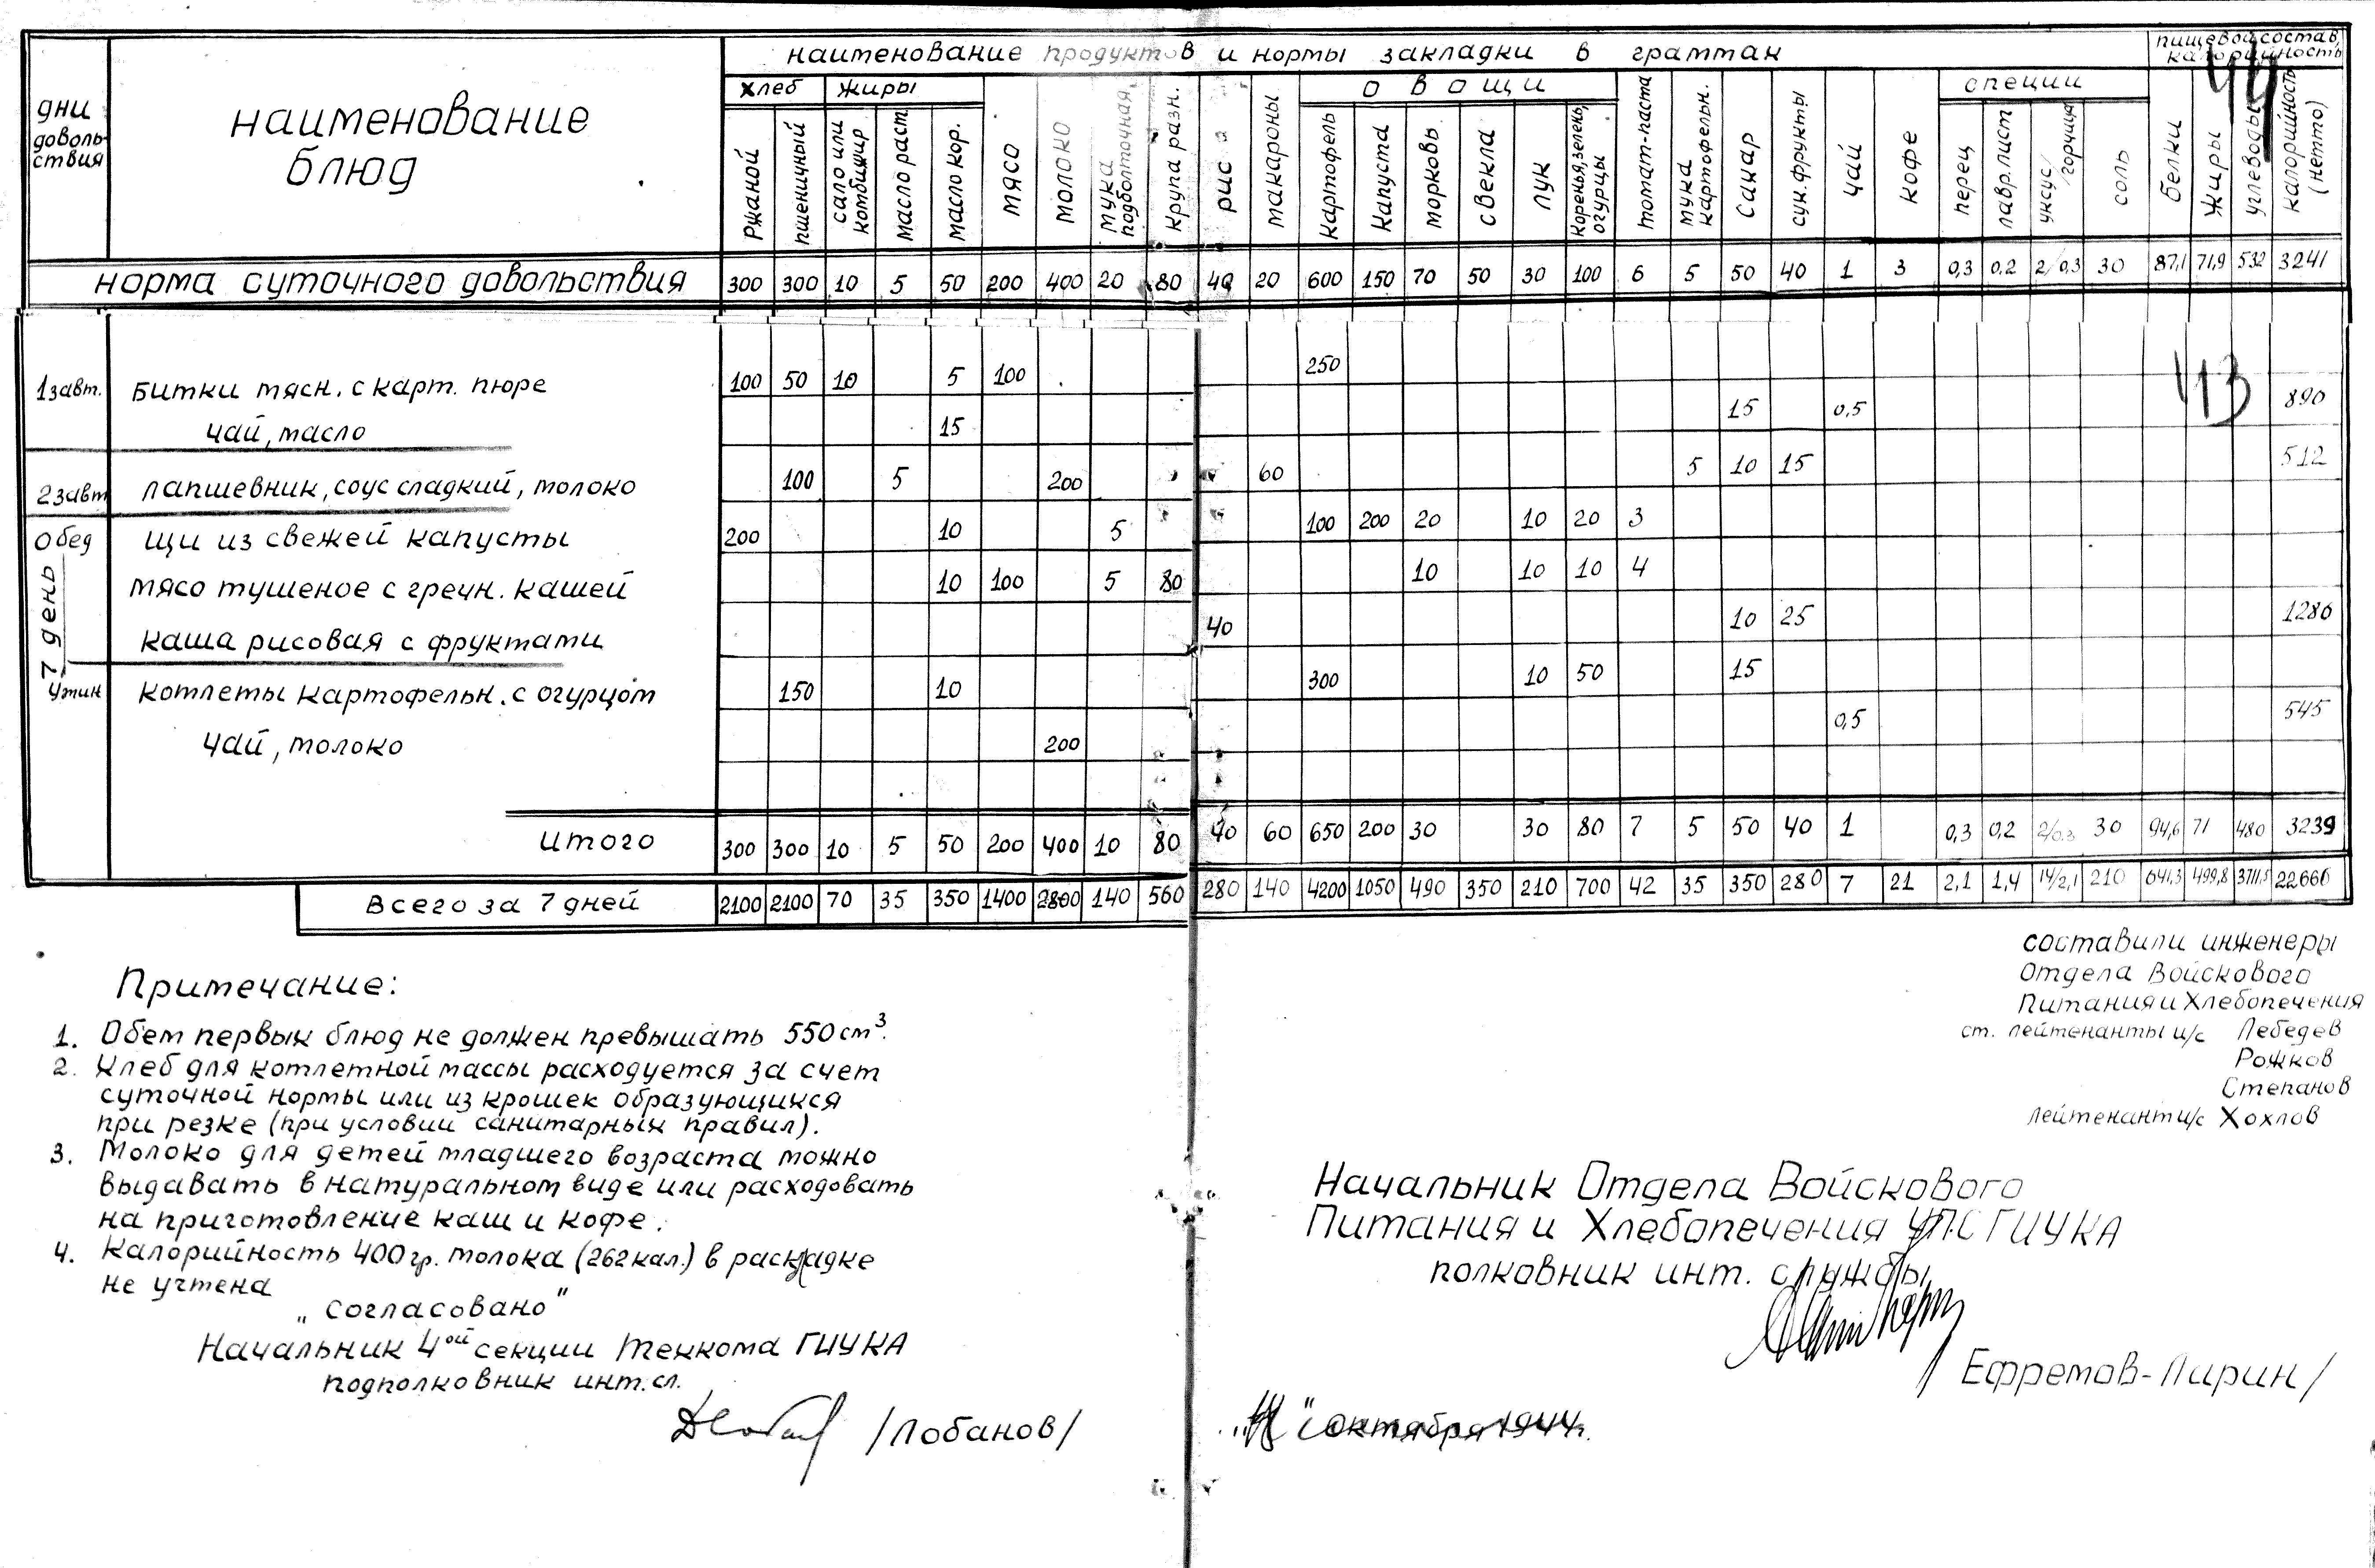 наименование продуктов и нормы закладки в граммах
пищевой состав, калорийность
дни довольствия
наименование блюд
хлеб жиры
овощи
специи
Ржаной
пшеничный
сало или комбижир
масло раст.
масло кор.
мясо
молоко
мука подболточная
крупа разн.
рис
макароны
картофель
капуста
морковь
свекла
лук
коренья, зелень, огурцы
томат-паста
мука картофельн.
сахар
сух. фрукты
чай
кофе
перец
лавр. лист
уксус/горчица
соль
белки
жиры
углеводы
калорийность (нетто)
44
норма суточного довольствия 300 300 10 5 50 200 400 20 80 40 20 600 150 70 50 30 100 6 5 50 40 1 3 0,3 0,2 2/0,3 30 87,1 71,9 532 3241
7 день
1 завт. Битки мясн. с карт. пюре 100 50 10 5 100 250
чай, масло 15 15 0,5 890
113
2 завт лапшевник, соус сладкий, молоко 100 5 200 60 5 10 15 512
Обед щи из свежей капусты 200 10 5 100 200 20 10 20 3
мясо тушеное с гречн. кашей 10 100 5 80 10 10 10 4
каша рисовая с фруктами 40 10 25 1280
Ужин котлеты картофельн. с огурцом 150 10 300 10 50 15
чай, молоко 200 0,5 545
Итого 300 300 10 5 50 200 400 10 80 40 60 650 200 30 30 80 7 5 50 40 1 0,3 0,2 2/0,3 30 94,6 71 480 3239
Всего за 7 дней 2100 2100 70 35 350 1400 2800 140 560 280 140 4200 1050 490 350 210 700 42 35 350 280 7 21 2,1 1,4 14/2,1 210 641,3 499,8 3711,5 22666
Примечание:
1. Обем первых блюд не должен превышать 550 см³.
2. Хлеб для котлетной массы расходуется за счет
суточной нормы или из крошек образующихся
при резке (при условии санитарных правил).
3. Молоко для детей младшего возраста можно
выдавать в натуральном виде или расходовать
на приготовление каш и кофе.
4. Калорийность 400 гр. молока (262 кал.) в раскладке
не учтена
„Согласовано"
Начальник 4ой секции Техкома ГИУКА
подполковник инт. сл.
/Лобанов/
составили инженеры
Отдела Войскового
Питания и Хлебопечения
ст. лейтенанты и/с Лебедев
Рожков
Степанов
Лейтенант и/с Хохлов
Начальник Отдела Войскового
Питания и Хлебопечения УПС ГИУКА
полковник инт. службы
/Ефремов-Пирин/
октября 1944г.